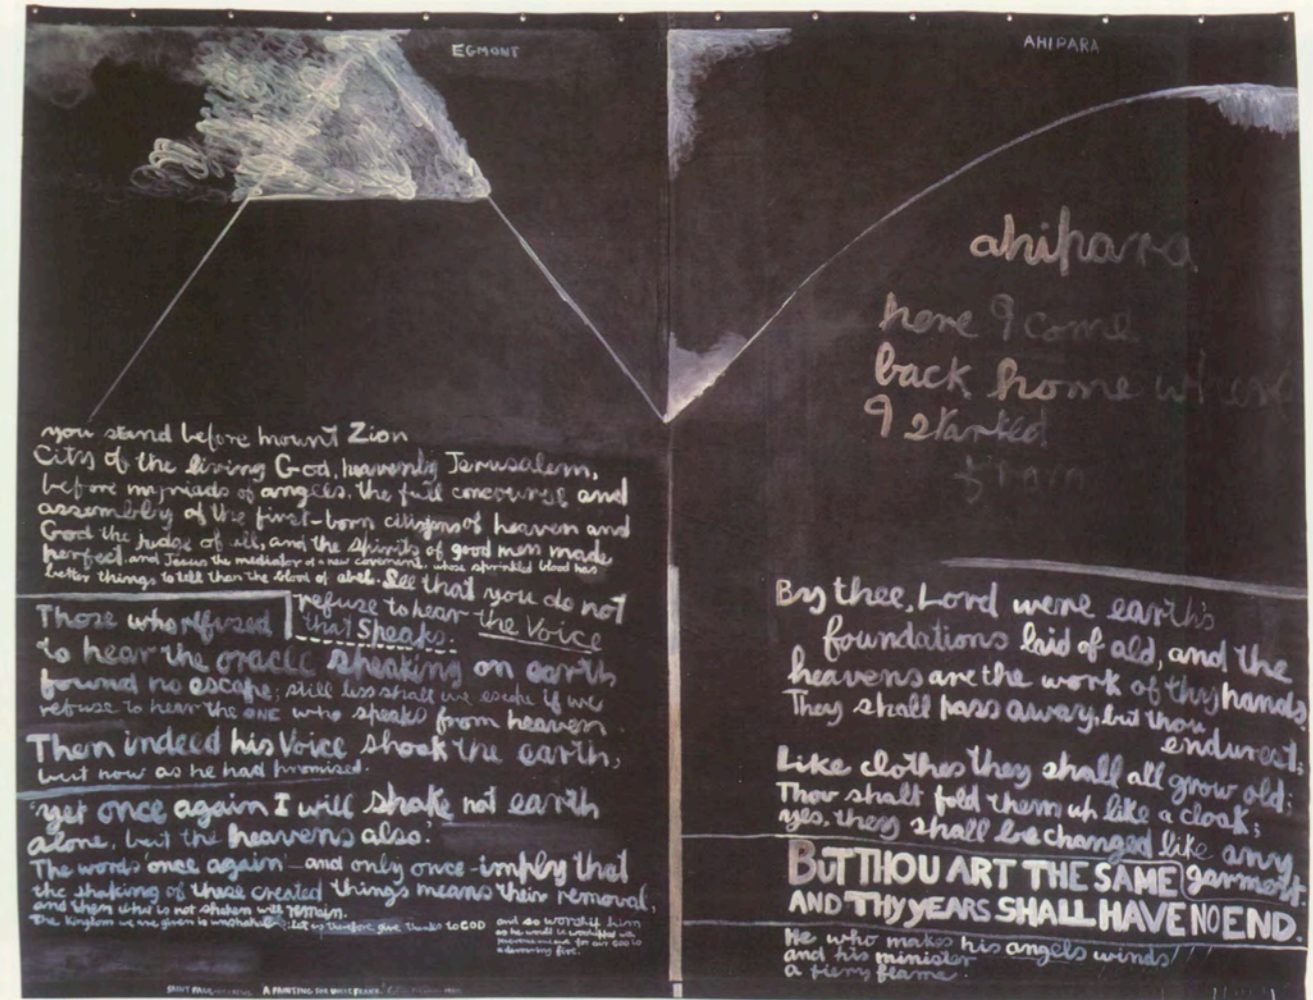 EGMONT
you stand before mount Zion
City of the living God, heavenly Jerusalem,
before myriads of angels. the full concourse and
assembly of the first-born citizens of heaven and
God the judge of all, and the spirits of good men made
perfect. and Jesus the mediator of a new covenant. whose sprinkled blood has
better things to tell than the blood of abel. See that you do not
refuse to hear the Voice
that Speaks.
Those who refused
to hear the oracle speaking on earth
found no escape; still less shall we escape if we
refuse to hear the ONE who speaks from heaven.
Then indeed his Voice shook the earth,
but now as he had promised.
'yet once again I will shake not earth
alone, but the heavens also.'
The words 'once again' - and only once - imply that
the shaking of these created things means their removal,
and then what is not shaken will remain.
The Kingdom we are given is unshakable; let us therefore give thanks to GOD
and so worship him
as he would be worshipped with
for our GOD is
a devouring fire.
A PAINTING FOR
AHIPARA
ahipara
here I come
back home where
I started
from
By thee, Lord were earth's
foundations laid of old, and the
heavens are the work of thy hands
They shall pass away, but thou
endurest;
Like clothes they shall all grow old;
Thou shalt fold them up like a cloak;
yes, they shall be changed like any
garment.
BUT THOU ART THE SAME
AND THY YEARS SHALL HAVE NO END.
He who makes his angels winds
and his minister
a fiery flame.